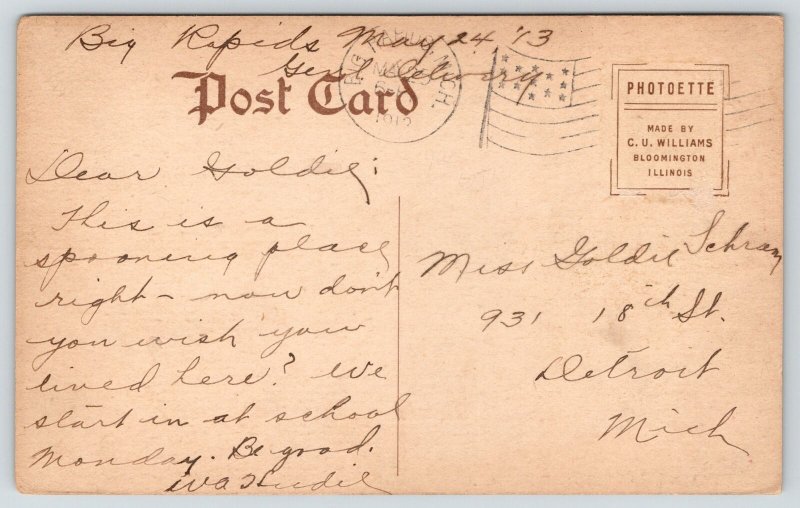 Big Rapids May 24 '13
Genl Delivery
Post Card
BIG RAPIDS, MICH.
MAY
1913
PHOTOETTE
MADE BY
C. U. WILLIAMS
BLOOMINGTON
ILLINOIS
Dear Goldie;
This is a
spooning place
right - now don't
you wish you
lived here? We
start in at school
Monday. Be good.
Iva
Miss Goldie Schram
931 18th St.
Detroit
Mich